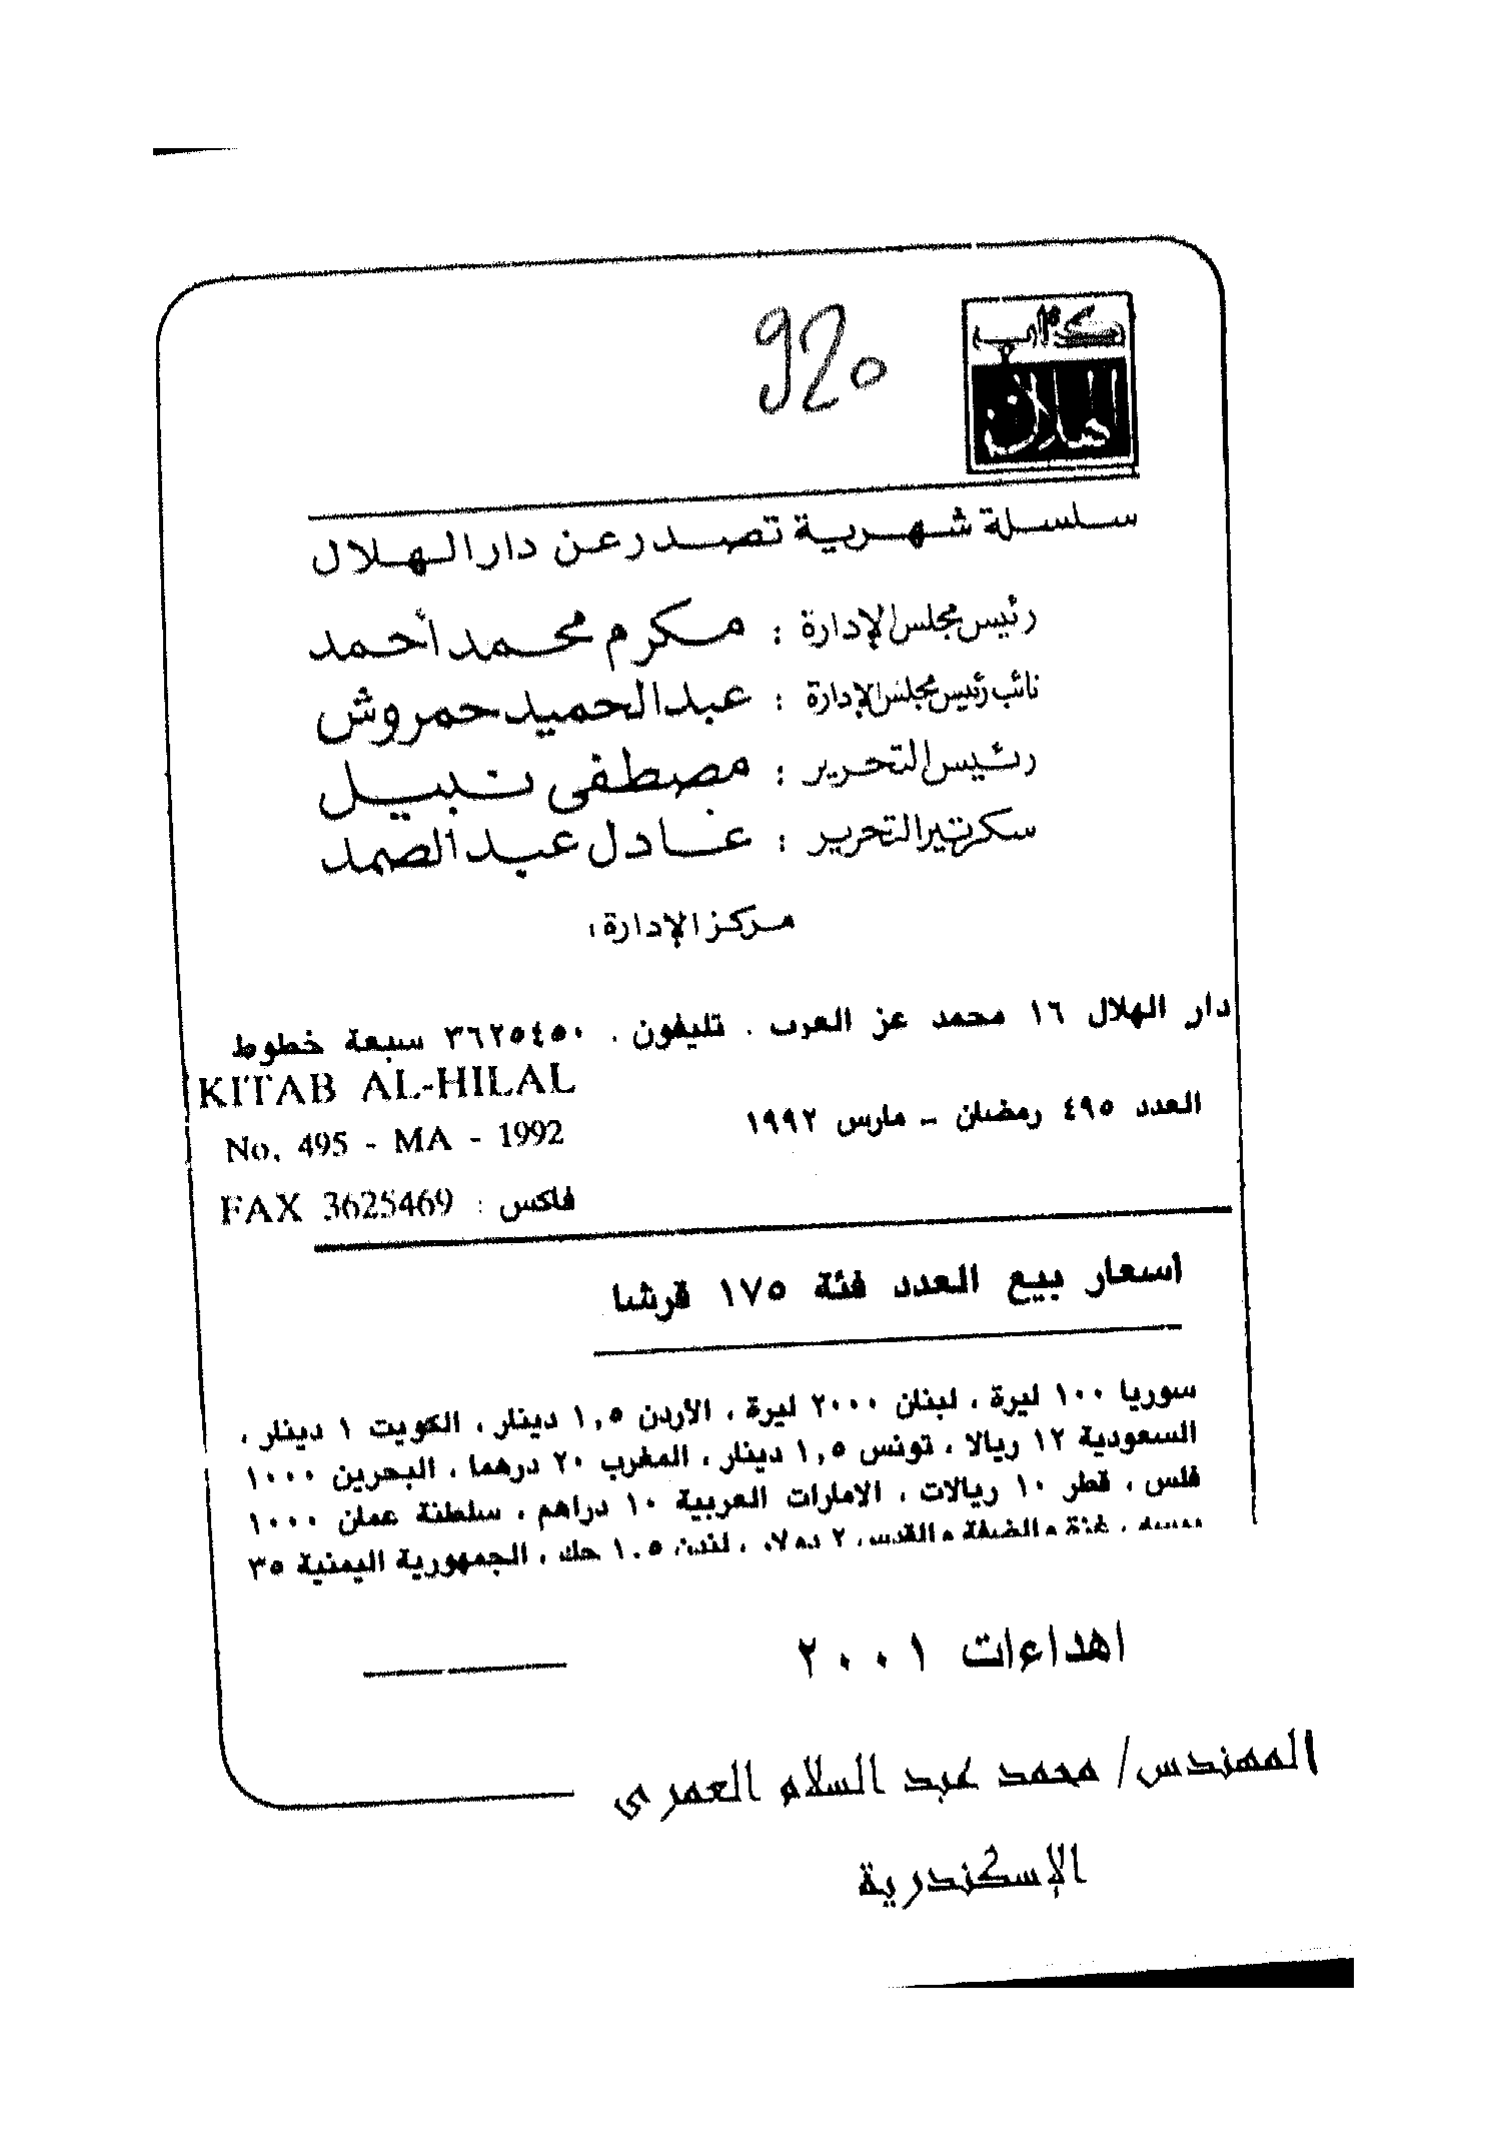 920
كتاب
الهلال
سلسلة شهرية تصدر عن دار الهلال
رئيس مجلس الإدارة : مكرم محمد أحمد
نائب رئيس مجلس الإدارة : عبد الحميد حمروش
رئيس التحرير : مصطفى نبيل
سكرتير التحرير : عادل عبد الصمد
مركز الإدارة :
دار الهلال ١٦ محمد عز العرب . تليفون . ٣٦٢٥٤٥٠ سبعة خطوط
KITAB AL-HILAL
العدد ٤٩٥ رمضان - مارس ١٩٩٢
No. 495 - MA - 1992
FAX 3625469 : فاكس
اسعار بيع العدد فئة ١٧٥ قرشا
سوريا ١٠٠ ليرة ، لبنان ٢٠٠٠ ليرة ، الأردن ١,٥ دينار ، الكويت ١ دينار ،
السعودية ١٢ ريالا ، تونس ١,٥ دينار ، المغرب ٢٠ درهما ، البحرين ١٠٠٠
فلس ، قطر ١٠ ريالات ، الامارات العربية ١٠ دراهم ، سلطنة عمان ١٠٠٠
غزة والضفة والقدس ٢ دولار ، لندن ١.٥ جك ، الجمهورية اليمنية ٣٥
اهداءات ٢٠٠١
المهندس/ محمد عبد السلام العمرى
الإسكندرية